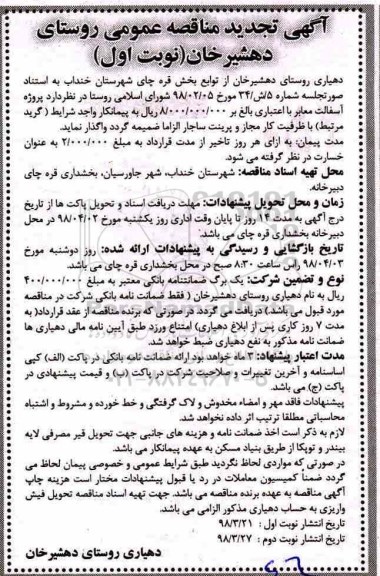 آگهی تجدید مناقصه عمومی روستای
دهشیرخان(نوبت اول)
دهیاری روستای دهشیرخان از توابع بخش قره چای شهرستان خنداب به استناد
صورتجلسه شماره ۵/ش/۳۴ مورخ ۹۸/۰۲/۰۵ شورای اسلامی روستا در نظردارد پروژه
آسفالت معابر با اعتباری بالغ بر ۸/۰۰۰/۰۰۰/۰۰۰ ریال به پیمانکار واجد شرایط ( گرید
مرتبط) با ظرفیت کار مجاز و پرینت ساجار الزاما ضمیمه گردد واگذار نماید.
مدت پیمان: به ازای هر روز تاخیر از مدت قرارداد به مبلغ ۲/۰۰۰/۰۰۰ به عنوان
خسارت در نظر گرفته می شود.
محل تهیه اسناد مناقصه: شهرستان خنداب، شهر جاورسیان، بخشداری قره چای
دبیرخانه.
زمان و محل تحویل پیشنهادات: مهلت دریافت اسناد و تحویل پاکت ها از تاریخ
درج آگهی به مدت ۱۴ روز تا پایان وقت اداری روز یکشنبه مورخ ۹۸/۰۴/۰۲ در محل
دبیرخانه بخشداری قره چای می باشد.
تاریخ بازگشایی و رسیدگی به پیشنهادات ارائه شده: روز دوشنبه مورخ
۹۸/۰۴/۰۳ راس ساعت ۸:۳۰ صبح در محل بخشداری قره چای می باشد.
نوع و تضمین شرکت: یک برگ ضمانتنامه بانکی معتبر به مبلغ ۴۰۰/۰۰۰/۰۰۰
ریال به نام دهیاری روستای دهشیرخان ( فقط ضمانت نامه بانکی شرکت در مناقصه
مورد قبول می باشد.) دریافت می گردد. در صورتی که برنده مناقصه از عقد قرارداد( به
مدت ۷ روز کاری پس از ابلاغ دهیاری) امتناع ورزد طبق آیین نامه مالی دهیاری ها
ضمانت نامه مذکور به نفع دهیاری ضبط خواهد شد.
مدت اعتبار پیشنهاد: ۳ ماه خواهد بود ارائه ضمانت نامه بانکی در پاکت (الف) کپی
اساسنامه و آخرین تغییرات و صلاحیت شرکت در پاکت (ب) و قیمت پیشنهادی در
پاکت (ج) می باشد.
پیشنهادات فاقد مهر و امضاء مخدوش و لاک گرفتگی و خط خورده و مشروط و اشتباه
محاسباتی مطلقا ترتیب اثر داده نخواهد شد.
لازم به ذکر است اخذ ضمانت نامه و هزینه های جانبی جهت تحویل قیر مصرفی لایه
بیندر و توپکا از طریق بنیاد مسکن به عهده پیمانکار می باشد.
در صورتی که مواردی لحاظ نگردید طبق شرایط عمومی و خصوصی پیمان لحاظ می
گردد ضمناً کمیسیون معاملات در رد یا قبول پیشنهادات مختار است هزینه چاپ
آگهی مناقصه به عهده برنده مناقصه می باشد. جهت تهیه اسناد مناقصه تحویل فیش
واریزی به حساب دهیاری مذکور الزامی می باشد.
تاریخ انتشار نوبت اول : ۹۸/۳/۲۱
تاریخ انتشار نوبت دوم : ۹۸/۳/۲۷
دهیاری روستای دهشیرخان